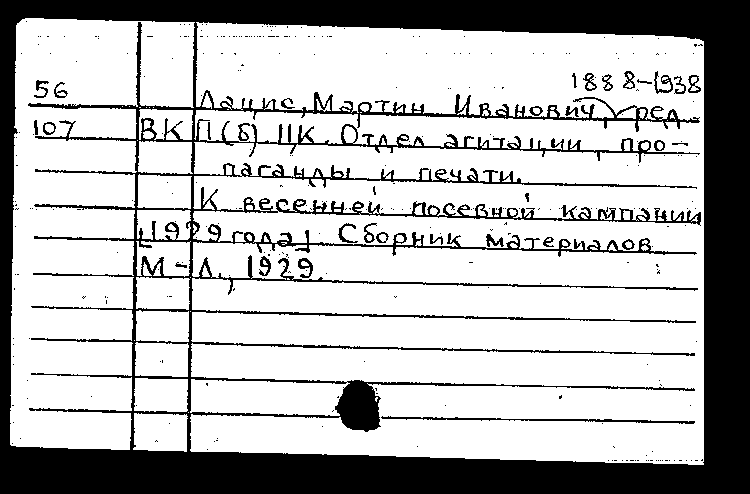 1888-1938
56 Лацис, Мартин Иванович, ред.
107 ВКП(б). ЦК. Отдел агитации, про-
паганды и печати.
К весенней посевной кампании
[1929 года] Сборник материалов
М-Л., 1929.